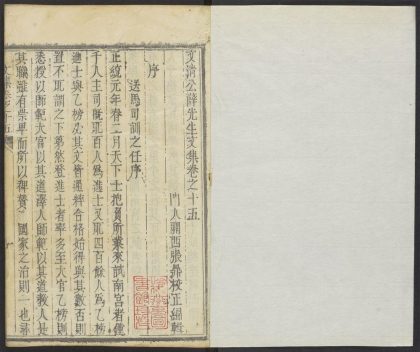 文清公薛先生文集卷之十五
門人關西張鼎校正編輯
序
送馬司訓之任序
正統元年春二月天下士抱負所業來試南宮者僅
千人主司既取百人為進士又取四百餘人為乙榜
進士與乙榜必其文皆選粹合格始得與其數否則
寘不取謂之下第然登進士者率多至大官乙榜則
悉授以師範大官以其道澤人師範以其道教人是
其職雖有崇卑而所以裨贊
國家之治則一也